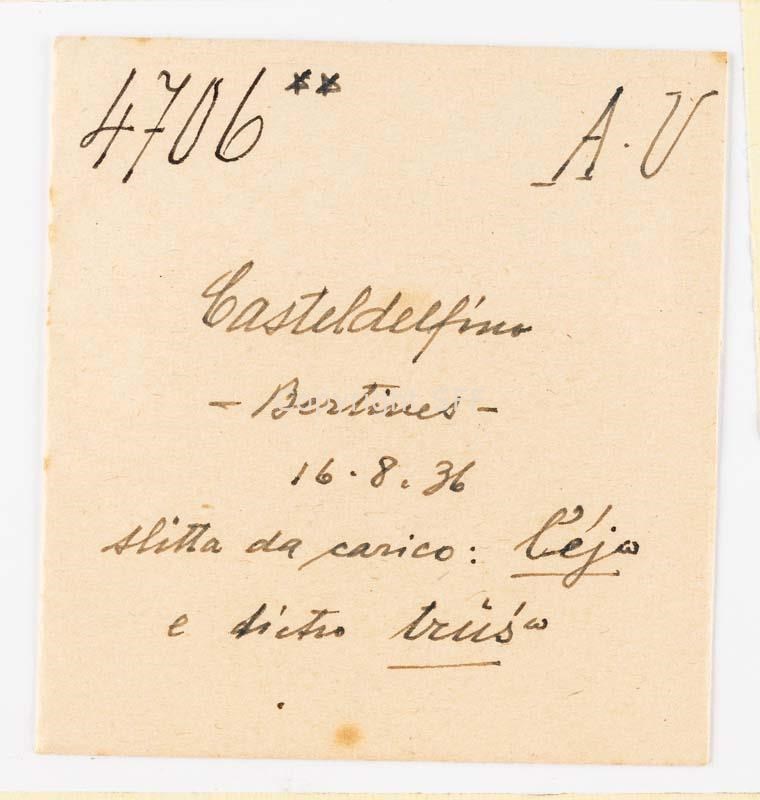 4706** A.V
Casteldelfino
- Bertines -
16.8.36
slitta da carico: léjo
e dietro trüśo